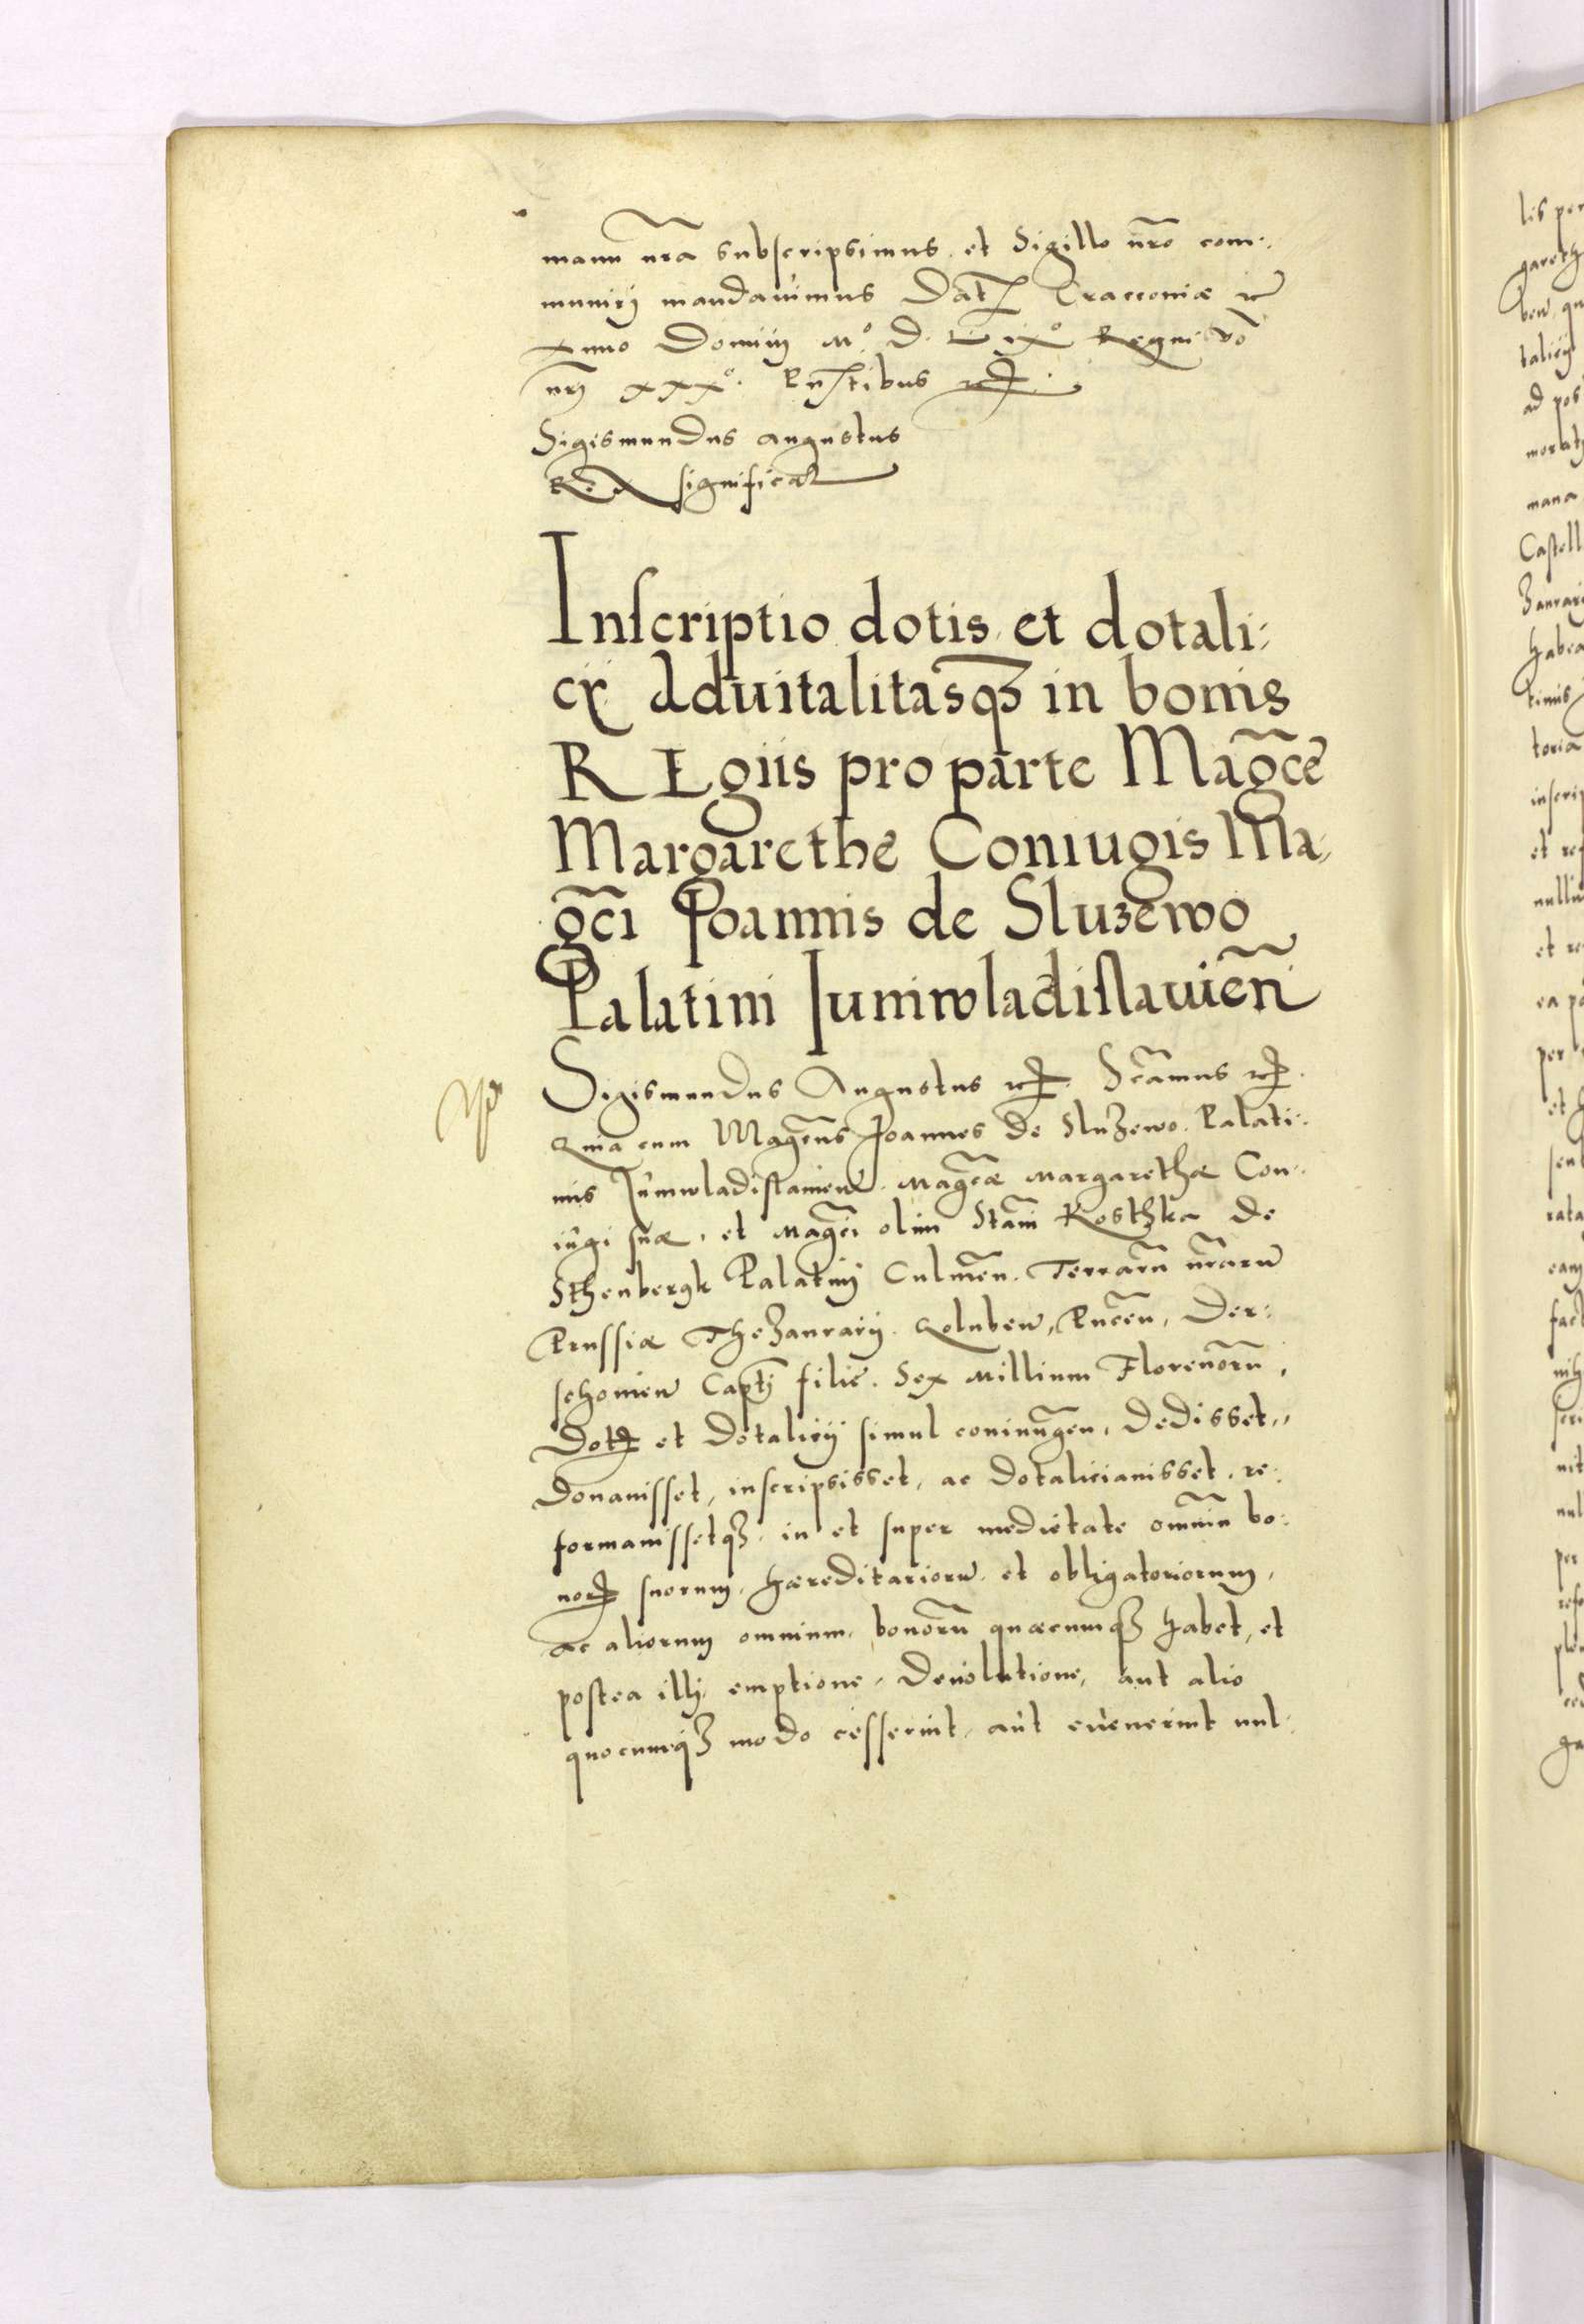 manu nra subscripsimus et Sigillo nro com:
muniri mandavimus Dat Cracoviæ
Anno Domini M° D. LIX° Regni vo
nri XXX°. Pntibus etc.
Sigismundus augustus
Rex significat
Inscriptio dotis et dotali:
cij Advitalitasq3 in bonis
REgiis pro parte Magce
Margarethe Coniugis Ma,
gci Joannis de Sluzewo
Palatini Juniwladislauien
Sigismundus Augustus etc. Scamus etc.
Quia cum Magcus Joannes de Sluzewo Palati:
nus Juniwladislauien. Magcæ Margarethæ Con:
iugi suæ, et Magci olim Stani Kosthka de
Sthenbergk Palatini Culmen. Terraru nraru
Prussiæ Thezaurarij. Goluben, Pucen, Der:
schouien Capti filie. Sex Millium Florenoru,
Dotis et Dotalicij simul coniungen, Dedisset,
Donauisset, inscripsisset, ac Dotaliciauisset, re:
formauissetq3 in et super medietate omniu bo:
norum suorum, hæreditarioru et obligatoriorum,
ac aliorum omnium, bonoru quæcumq3 habet, et
postea illi, emptione, Deuolutione, aut alio
quocumq3 modo cesserint, aut euenerint nul: